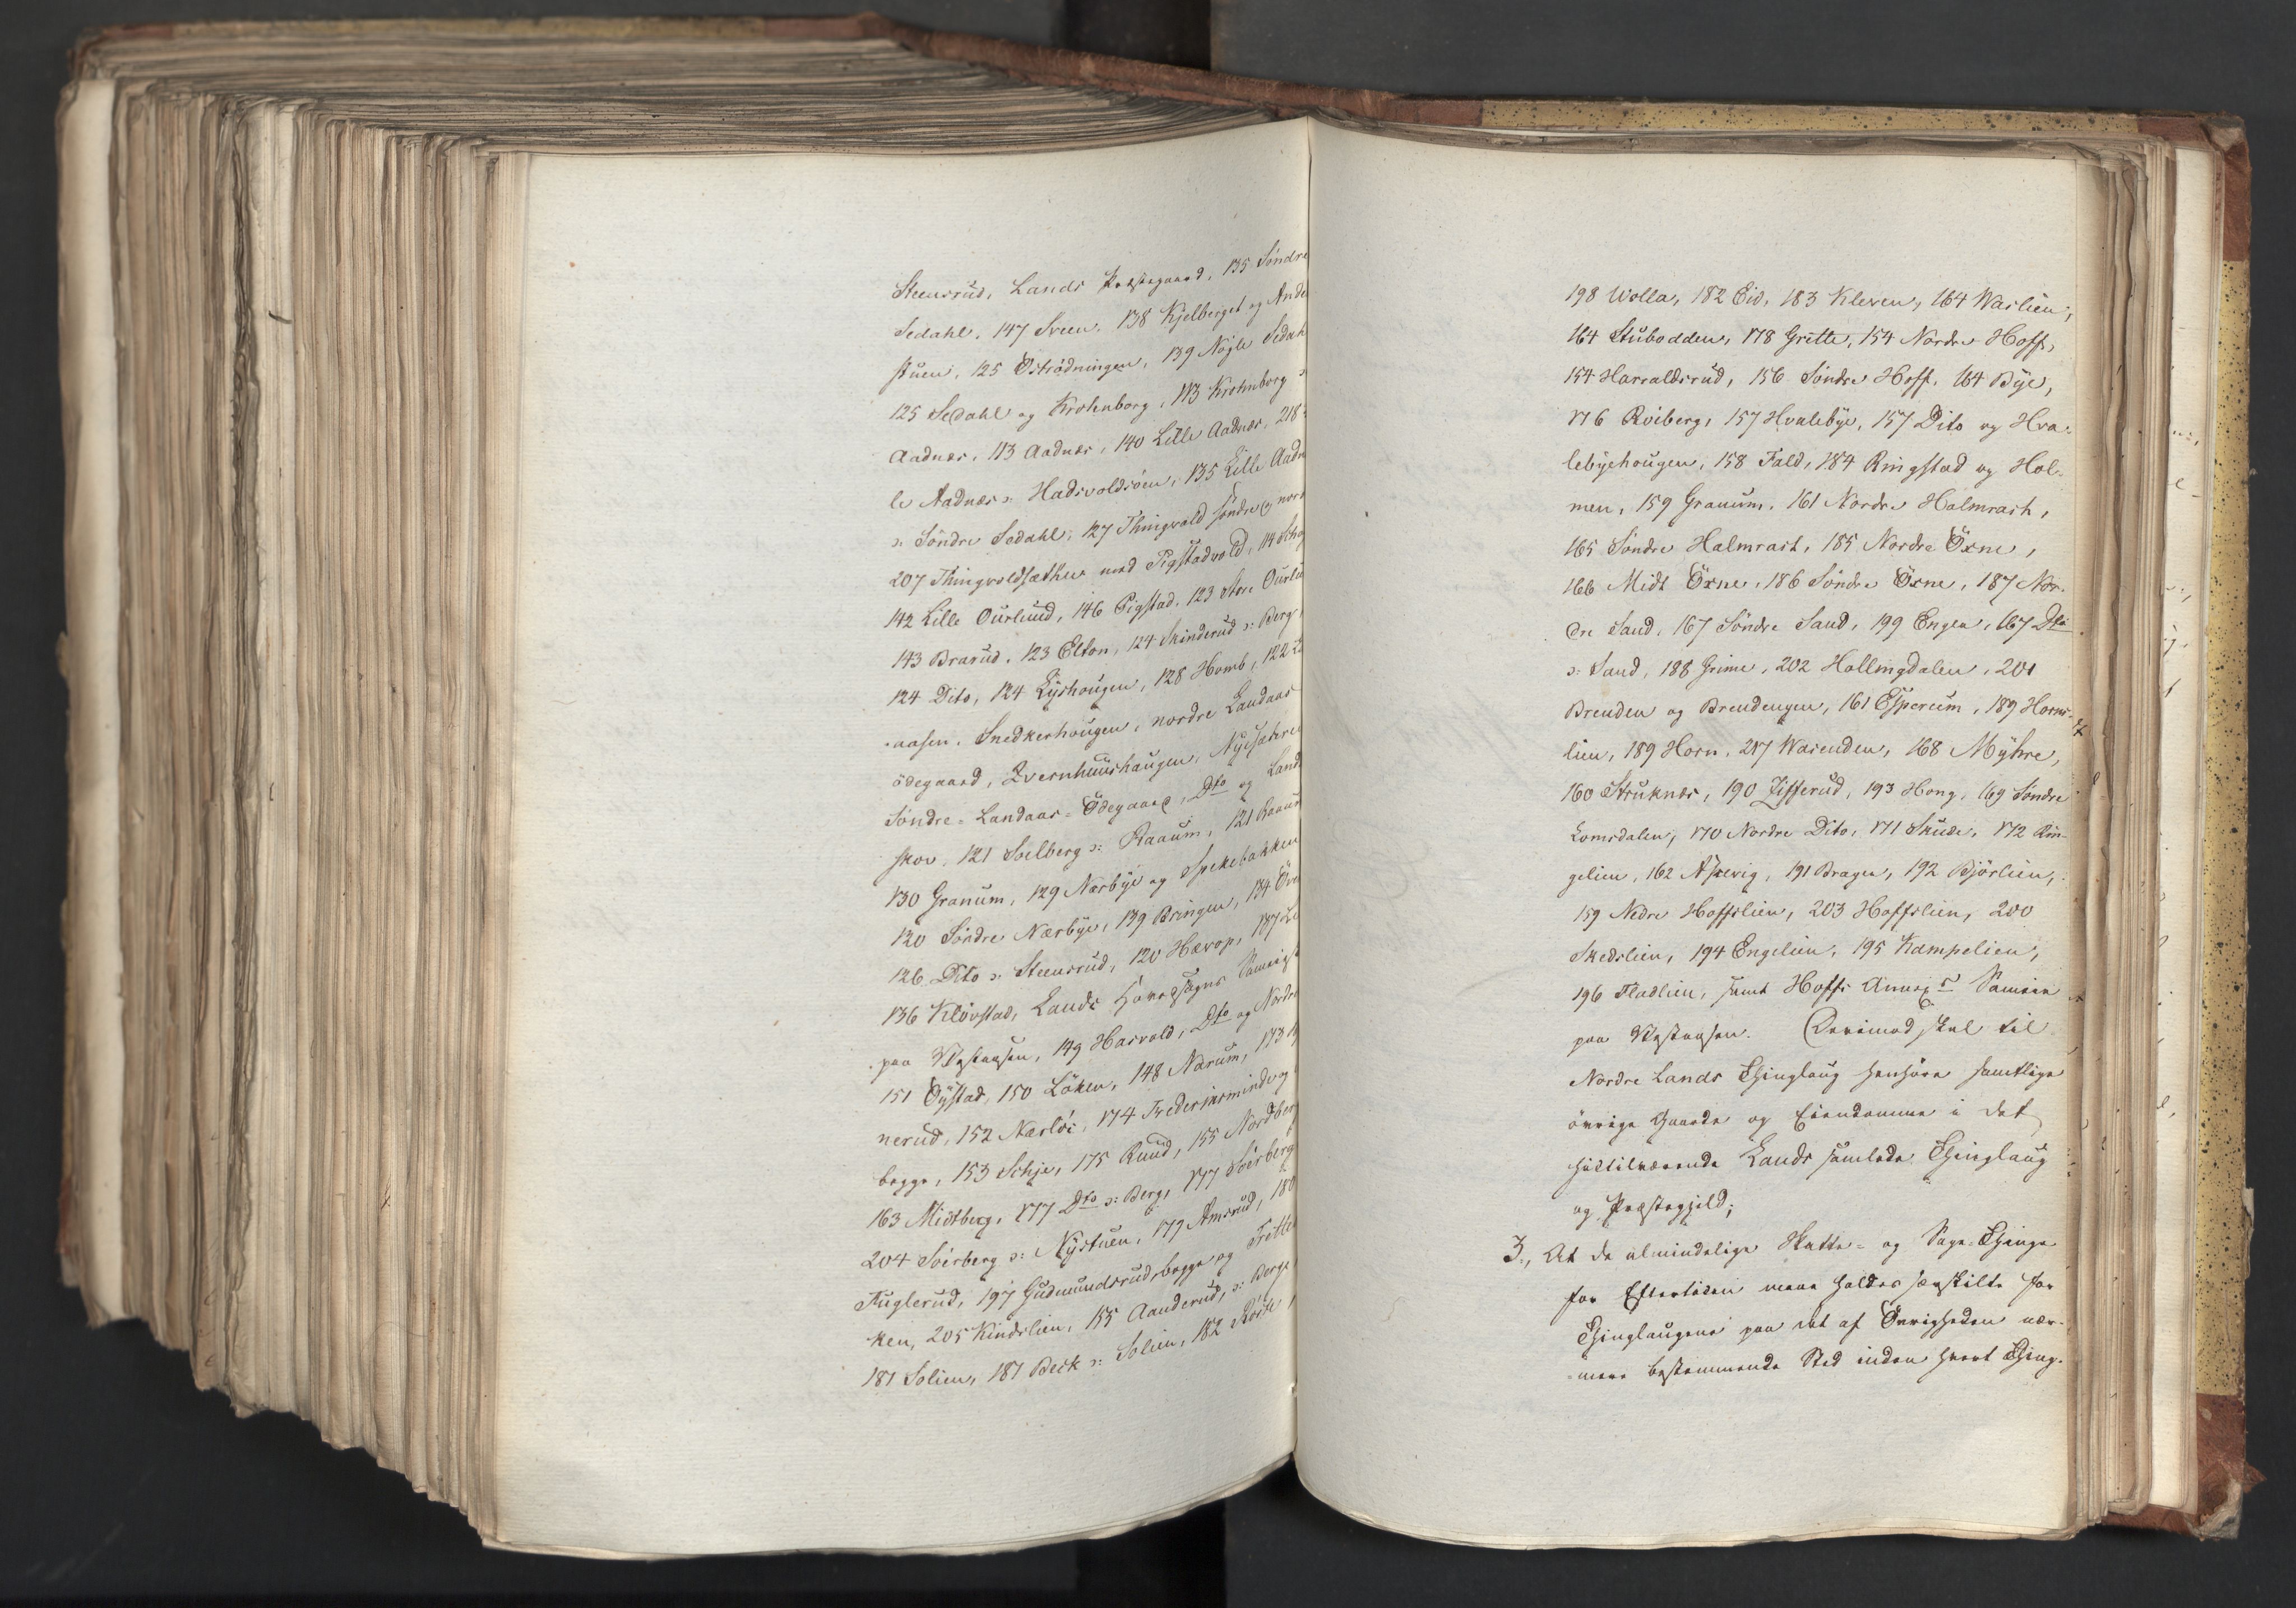 Steensrud, Lands Præstegaard, 135 Söndre
Sedahl, 147 Sveen, 138 Kjelberget og Ande
stuen, 125 Öströdningen, 139 Nøjle Sedah
125 Sedahl og Krohnborg, 113 Krohnborg
Aadnæs, 113 Aadnæs, 140 Lille Aadnæs, 218
le Aadnæs o: Hadsvoldsöen, 135 Lille Aadn
o: Söndre Sedahl, 127 Thingvold söndre og nord
207 Thingvoldsæther med Pigstadvold, 114
142 Lille Ourlund, 146 Pigstad, 123 Store Ourlu
143 Brarud, 123 Elton, 124 Skinderud o: Berg,
124 Dito, 124 Lyshougen, 128 Homb, 122
aasen, Snedkerhougen, nordre Landaas
ödegaard, Qvernhuushaugen, Nyesæhre
Söndre-Landaas-Ödegaard, Dto og Land
skov, 121 Soelberg o: Raaum, 121 Raaum
130 Granum, 129 Nærbye og Spekebakken
120 Söndre Nærbye, 139 Bringen, 134 Öve
126 Dito o: Steensrud, 120 Hævop, 137
136 Klövstad, Lands Hovedsogns Sameie
paa Vestaasen, 149 Hasvold, Dto og Nordre
151 Öystad, 150 Löken, 148 Narum, 173
nerud, 152 Nærlöi, 174 Fredersminde og
begge, 153 Schje, 175 Ruud, 155 Nordber
163 Midtberg, 177 Dto o: Berg, 177 Soérberg
204 Soérberg o: Nystuen, 179 Amsrud, 180
Fuglerud, 197 Gudmundsrud begge og Trette
ken, 205 Kindslien, 155 Aanderud, o: Berge
181 Solien, 181 Beck o: Solien, 182 Röste,
198 Wolla, 182 Eid, 183 Kleven, 164 Waslien,
164 Stubodden, 178 Gritte, 154 Nordre Hoff,
154 Harraldsrud, 156 Söndre Hoff, 164 Bye,
176 Röiberg, 157 Hvalebye, 157 Dito og Hva-
lebyehougen, 158 Fald, 184 Ringstad og Hol-
men, 159 Granum, 161 Nordre Halmrast,
165 Söndre Halmrast, 185 Nordre Öxne,
166 Midt Öxne, 186 Söndre Öxne, 187 Nor-
dre Sand, 167 Söndre Sand, 199 Engen, 167 Dto
o: Sand, 188 Grime, 202 Hollingdalen, 201
Brenden og Brendengen, 161 Esperum, 189 Horns-
lien, 189 Horn, 217 Warenden, 168 Myhre,
160 Struknæs, 190 Zifferud, 193 Hong, 169 Söndre
Lomsdalen, 170 Nordre Dito, 171 Skude, 172 Rin-
gelien, 162 Aspevig, 191 Brager, 192 Björlien,
159 Nedre Hoffslien, 203 Hoffslien, 200
Skedslien, 194 Engelien, 195 Kampelien,
196 Fladlien, samt Hoffs Annex's Sameie
paa Vestaasen. Derimod skal til
Nordre Lands Thinglaug henhøre samtlige
øvrige Gaarde og Eiendomme i det
hidtilværende Lands samlede Thinglaug
og Præstegjeld;
3., At de almindelige Skatte- og Sage-Thinge
for Eftertiden maae holdes særskilte for
Thinglaugene paa det af Øvrigheden nær-
mere bestemmende Sted inden hvert Thing-